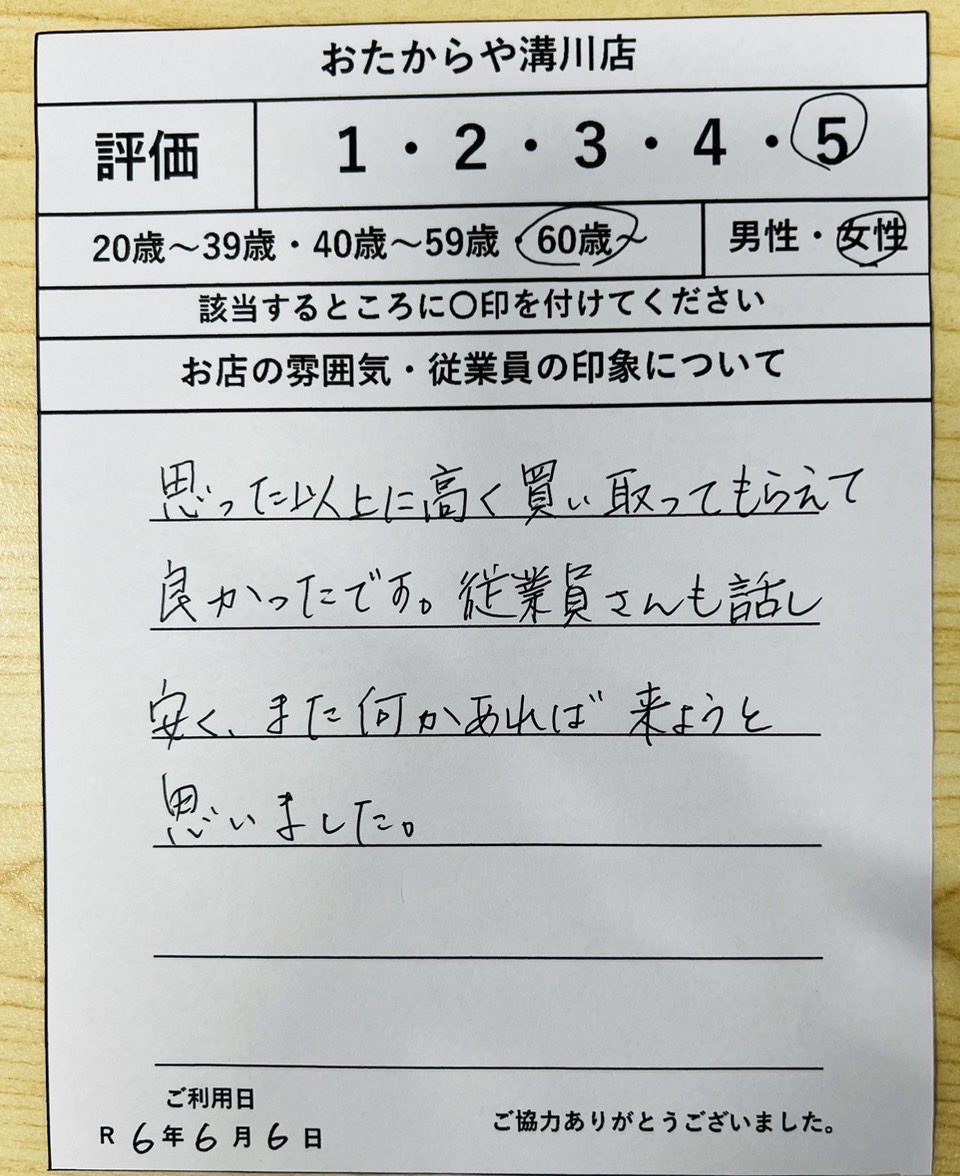 おたからや溝川店
評価 1・2・3・4・5
20歳～39歳・40歳～59歳・60歳～ 男性・女性
該当するところに〇印を付けてください
お店の雰囲気・従業員の印象について
思った以上に高く買い取ってもらえて
良かったです。従業員さんも話し
安く、また何かあれば来ようと
思いました。
ご利用日
R 6年6月6日
ご協力ありがとうございました。